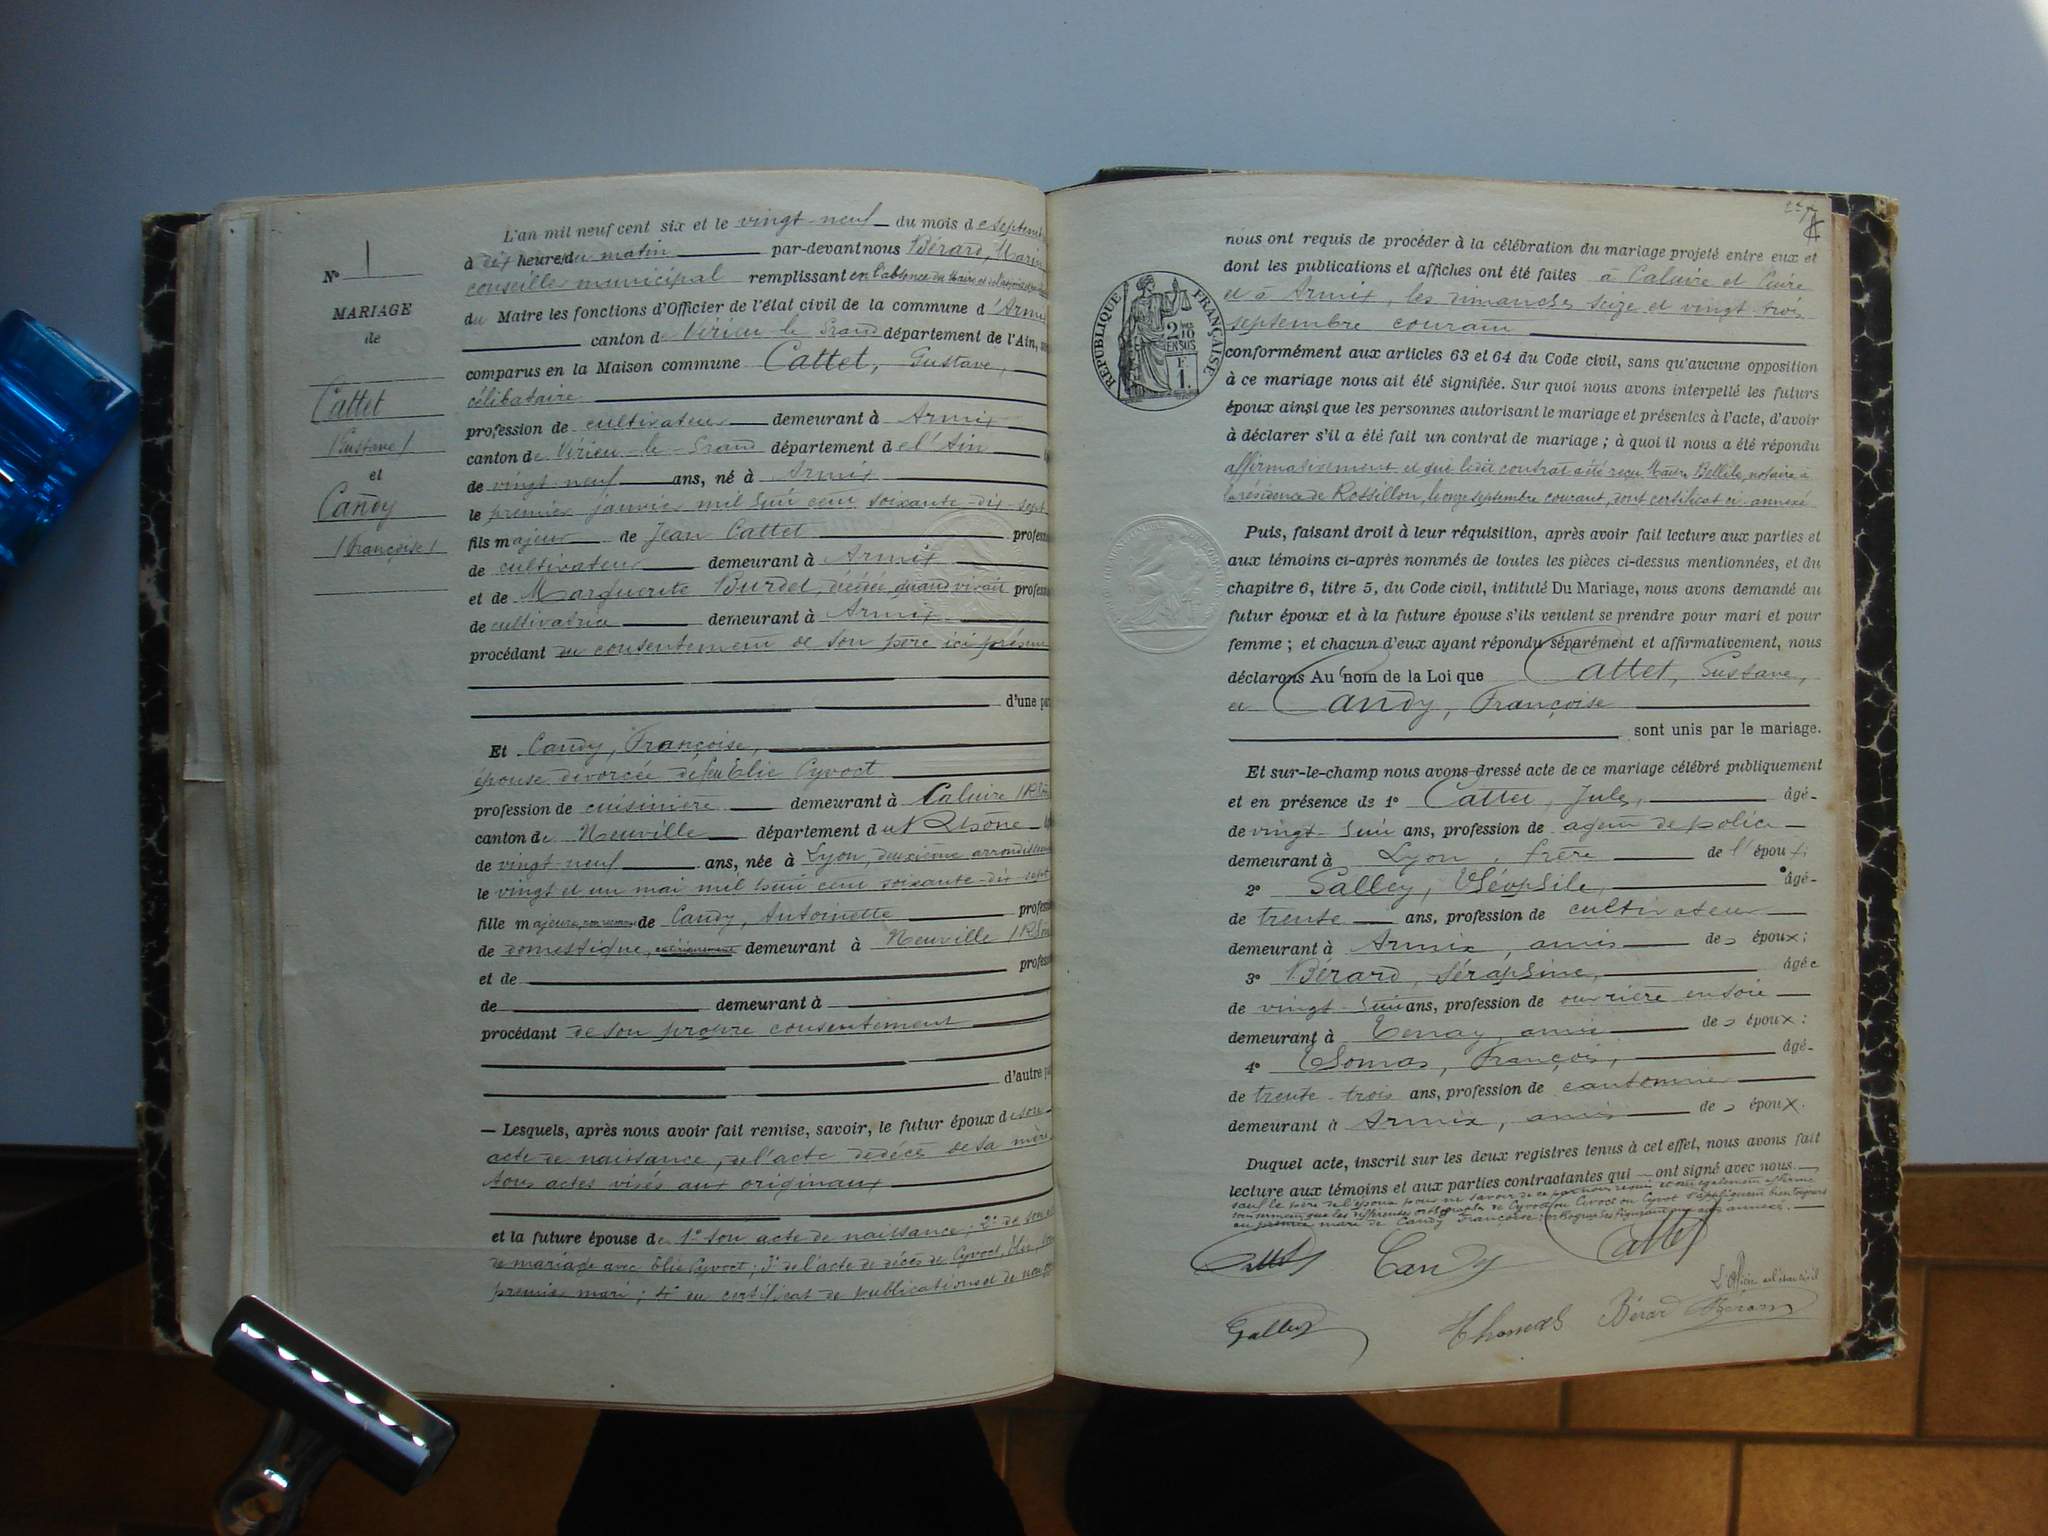 N° 1
MARIAGE
de
Cattet
(Gustave)
et
Candy
(Françoise)
L'an mil neuf cent six et le vingt-neuf du mois de septembre
à dix heures du matin par-devant nous Bérard, Marin
conseiller municipal remplissant en l'absence du Maire et de l'adjoint
du Maire les fonctions d'Officier de l'état civil de la commune d'Armix
canton de Virieu-le-Grand département de l'Ain,
comparus en la Maison commune Cattet, Gustave,
célibataire
profession de cultivateur demeurant à Armix
canton de Virieu-le-Grand département de l'Ain
de vingt-neuf ans, né à Armix
le premier janvier mil huit cent soixante-dix-sept
fils majeur de Jean Cattet profes
de cultivateur demeurant à Armix
et de Marguerite Burdet, décédée, quand vivait profes
de cultivatrice demeurant à Armix
procédant du consentement de son père ici présent
d'une par
Et Candy, Françoise,
épouse divorcée de feu Elie Cyvoct
profession de cuisinière demeurant à Caluire (Rhône
canton de Neuville département du Rhône
de vingt-neuf ans, née à Lyon, deuxième arrondissement
le vingt et un mai mil huit cent soixante-dix-sept
fille majeure, non reconnue de Candy, Antoinette profes
de domestique, demeurant à Neuville (Rhône
et de profes
de demeurant à
procédant de son propre consentement
d'autre pa
— Lesquels, après nous avoir fait remise, savoir, le futur époux de son
acte de naissance, de l'acte de décès de sa mère
tous actes visés aux originaux
et la future épouse de 1° son acte de naissance; 2° de son
de mariage avec Elie Cyvoct; 3° de l'acte de décès de Cyvoct, Elie, son
premier mari; 4° du certificat de publications et de non
nous ont requis de procéder à la célébration du mariage projeté entre eux et
dont les publications et affiches ont été faites à Caluire et Cuire
et à Armix, les dimanches seize et vingt-trois
septembre courant
RÉPUBLIQUE FRANÇAISE
2/10 EN SUS
F. 1.
conformément aux articles 63 et 64 du Code civil, sans qu'aucune opposition
à ce mariage nous ait été signifiée. Sur quoi nous avons interpellé les futurs
époux ainsi que les personnes autorisant le mariage et présentes à l'acte, d'avoir
à déclarer s'il a été fait un contrat de mariage ; à quoi il nous a été répondu
affirmativement et que ledit contrat a été reçu Maître Bellile, notaire à
la résidence de Rossillon, le onze septembre courant, dont certificat ci-annexé
Puis, faisant droit à leur réquisition, après avoir fait lecture aux parties et
aux témoins ci-après nommés de toutes les pièces ci-dessus mentionnées, et du
chapitre 6, titre 5, du Code civil, intitulé Du Mariage, nous avons demandé au
futur époux et à la future épouse s'ils veulent se prendre pour mari et pour
femme ; et chacun d'eux ayant répondu séparément et affirmativement, nous
déclarons Au nom de la Loi que Cattet, Gustave,
et Candy, Françoise
sont unis par le mariage.
Et sur-le-champ nous avons dressé acte de ce mariage célébré publiquement
et en présence de 1° Cattet, Jules, âgé
de vingt-huit ans, profession de agent de police
demeurant à Lyon, frère de l'époux;
2° Galley, Théophile, âgé
de trente ans, profession de cultivateur
demeurant à Armix, amis des époux;
3° Bérard, Séraphine, âgée
de vingt-huit ans, profession de ouvrière en soie
demeurant à Tenay, amie des époux;
4° Thomas, François, âgé
de trente-trois ans, profession de cantonnier
demeurant à Armix, amis des époux.
Duquel acte, inscrit sur les deux registres tenus à cet effet, nous avons fait
lecture aux témoins et aux parties contractantes qui ont signé avec nous
sauf le père de l'époux pour ne savoir de ce par nous requis et ont également affirmé
que les différentes orthographes de Cyvoct ou Civoct ou Cyvot s'appliquent bien toujours
au premier mari de Candy Françoise;
Cattet Candy Cattet
L'Officier de l'état civil
Galley Thomas Bérard Bérard